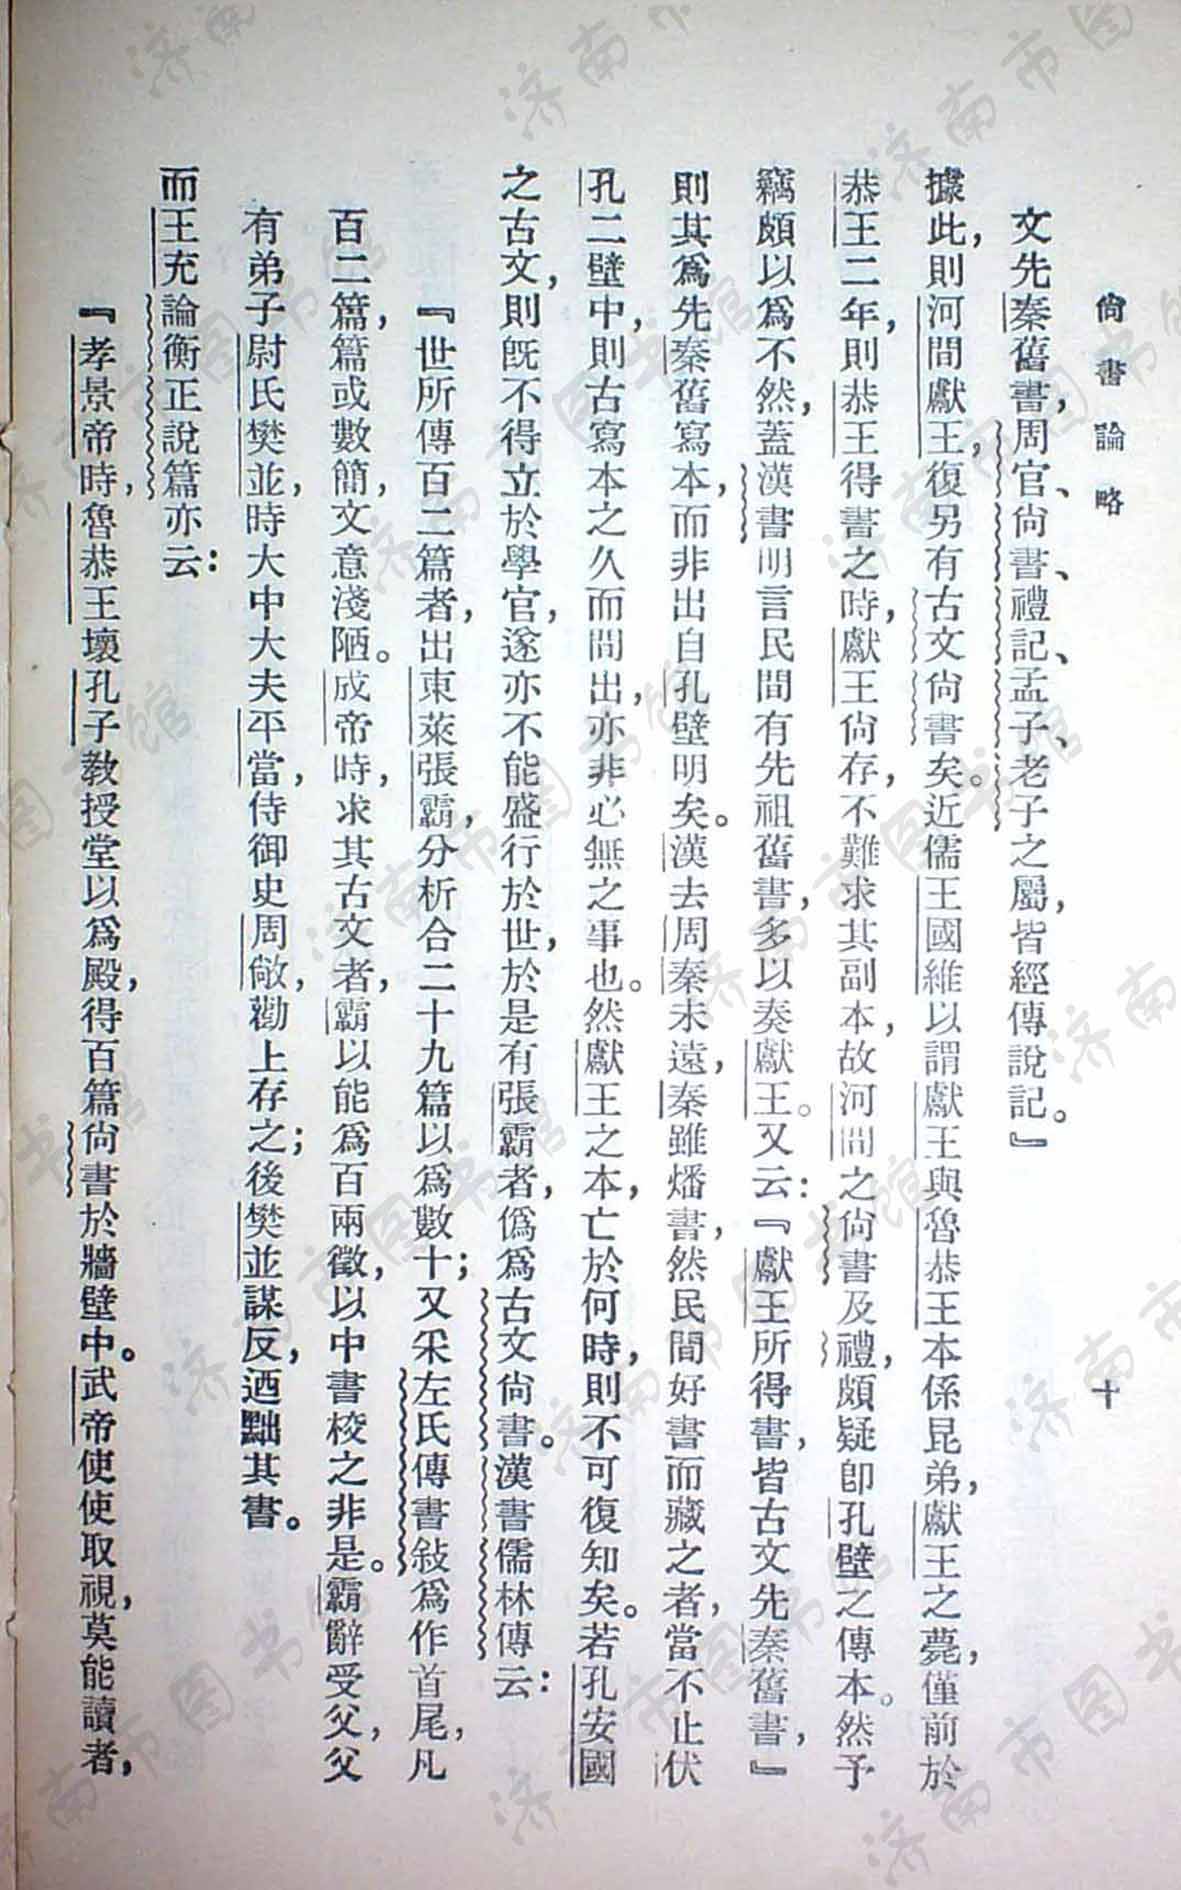 尙書論略
十
文先秦舊書，周官、尙書、禮記、孟子、老子之屬，皆經傳說記。』
據此，則河間獻王，復另有古文尙書矣。近儒王國維以謂獻王與魯恭王本係昆弟，獻王之薨，僅前於
恭王二年，則恭王得書之時，獻王尙存，不難求其副本，故河間之尙書及禮，頗疑卽孔壁之傳本。然予
竊頗以爲不然，蓋漢書明言民間有先祖舊書，多以奏獻王。又云：『獻王所得書，皆古文先秦舊書，』
則其爲先秦舊寫本，而非出自孔壁明矣。漢去周秦未遠，秦雖燔書，然民間好書而藏之者，當不止伏
孔二壁中，則古寫本之久而間出，亦非必無之事也。然獻王之本，亡於何時，則不可復知矣。若孔安國
之古文，則旣不得立於學官，遂亦不能盛行於世，於是有張霸者，僞爲古文尙書。漢書儒林傳云：
『世所傳百二篇者，出東萊張霸，分析合二十九篇以爲數十；又采左氏傳書敍爲作首尾，凡
百二篇，篇或數簡，文意淺陋。成帝時，求其古文者，霸以能爲百兩徵，以中書校之非是。霸辭受父，父
有弟子尉氏樊並，時大中大夫平當，侍御史周敞，勸上存之；後樊並謀反，迺黜其書。
而王充論衡正說篇亦云：
『孝景帝時，魯恭王壞孔子敎授堂以爲殿，得百篇尙書於牆壁中。武帝使使取視，莫能讀者，
济南市图书馆